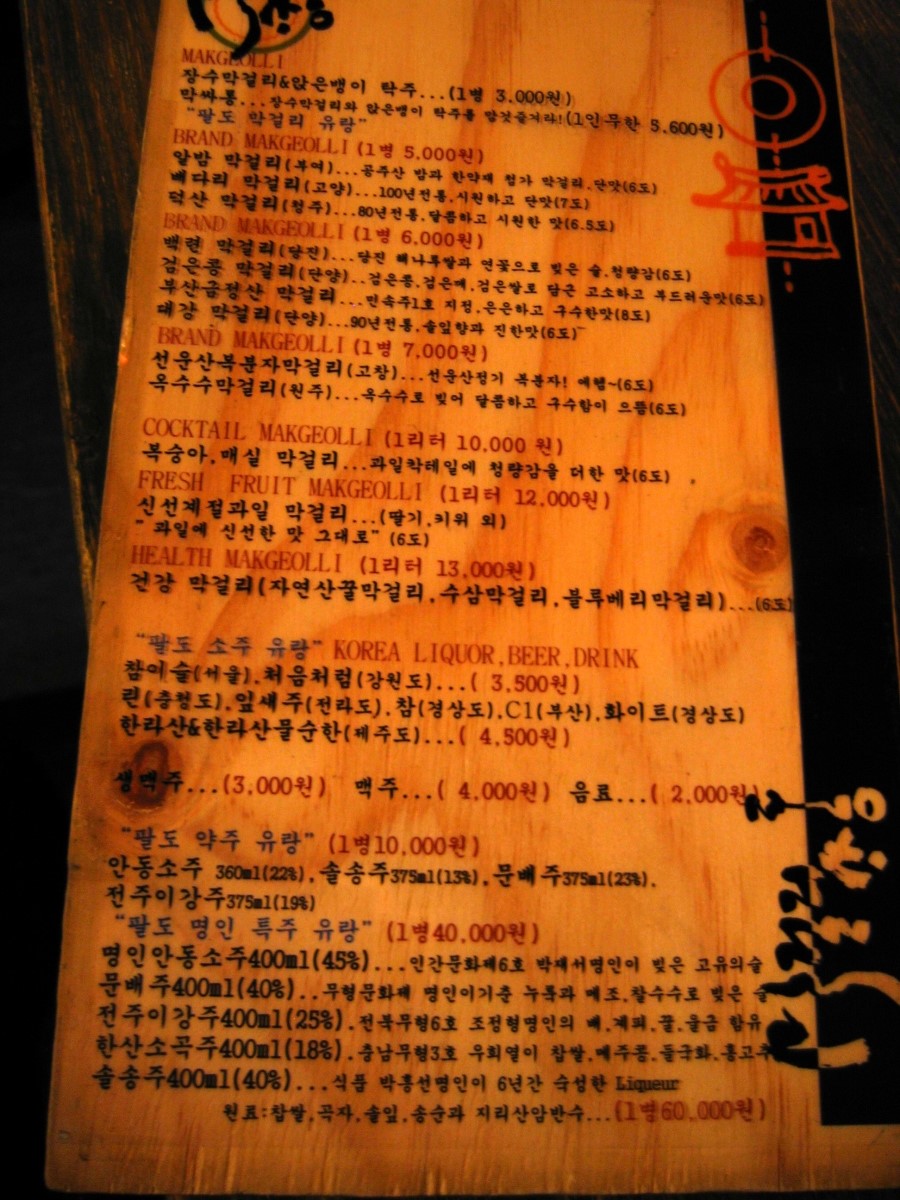 MAKGEOLLI
장수막걸리&앉은뱅이 탁주...(1병 3.000원)
막싸롱...장수막걸리와 앉은뱅이 탁주를 맘껏즐겨라!(1인무한 5.600원)
"팔도 막걸리 유랑"
BRAND MAKGEOLLI (1병 5.000원)
알밤 막걸리(부여)...공주산 밤과 한약재 첨가 막걸리.단맛(6도)
배다리 막걸리(고양)...100년전통.시원하고 단맛(7도)
덕산 막걸리(청주)...80년전통.달콤하고 시원한 맛(6.5도)
BRAND MAKGEOLLI (1병 6.000원)
백련 막걸리(당진)...당진 해나루쌀과 연꽃으로 빚은 술.청량감(6도)
검은콩 막걸리(단양)..검은콩.검은깨.검은쌀로 담근 고소하고 부드러운맛(6도)
부산금정산 막걸리...민속주1호 지정.은은하고 구수한맛(8도)
대강 막걸리(단양)...90년전통.솔잎향과 진한맛(6도)
BRAND MAKGEOLLI (1병 7.000원)
선운산복분자막걸리(고창)...선운산정기 복분자! 에헴~(6도)
옥수수막걸리(원주)...옥수수로 빚어 달콤하고 구수함이 으뜸(6도)
COCKTAIL MAKGEOLLI (1리터 10.000 원)
복숭아.매실 막걸리...과일칵테일에 청량감을 더한 맛(6도)
FRESH FRUIT MAKGEOLLI (1리터 12.000원)
신선계절과일 막걸리...(딸기.키위 외)
" 과일에 신선한 맛 그대로" (6도)
HEALTH MAKGEOLLI (1리터 13.000원)
건강 막걸리(자연산꿀막걸리.수삼막걸리.블루베리막걸리)...(6도)
"팔도 소주 유랑" KOREA LIQUOR.BEER.DRINK
참이슬(서울).처음처럼(강원도)...( 3.500원)
린(충청도).잎새주(전라도).참(경상도).C1(부산).화이트(경상도)
한라산&한라산물순한(제주도)...( 4.500원)
생맥주...(3.000원) 맥주...( 4.000원) 음료...( 2.000원)
"팔도 약주 유랑" (1병10.000원)
안동소주 360ml(22%).솔송주375ml(13%).문배주375ml(23%).
전주이강주375ml(19%)
"팔도 명인 특주 유랑" (1병40.000원)
명인안동소주400ml(45%)...인간문화제6호 박재서명인이 빚은 고유의술
문배주400ml(40%)..무형문화제 명인이기춘 누룩과 메조.찰수수로 빚은 술
전주이강주400ml(25%).전북무형6호 조정형명인의 배.계피.꿀.울금 함유
한산소곡주400ml(18%).충남무형3호 우희열이 찹쌀.메주콩.들국화.홍고추
솔송주400ml(40%)...식품 박흥선명인이 6년간 숙성한 Liqueur
원료:찹쌀.곡자.솔잎.송순과 지리산암반수...(1병60.000원)